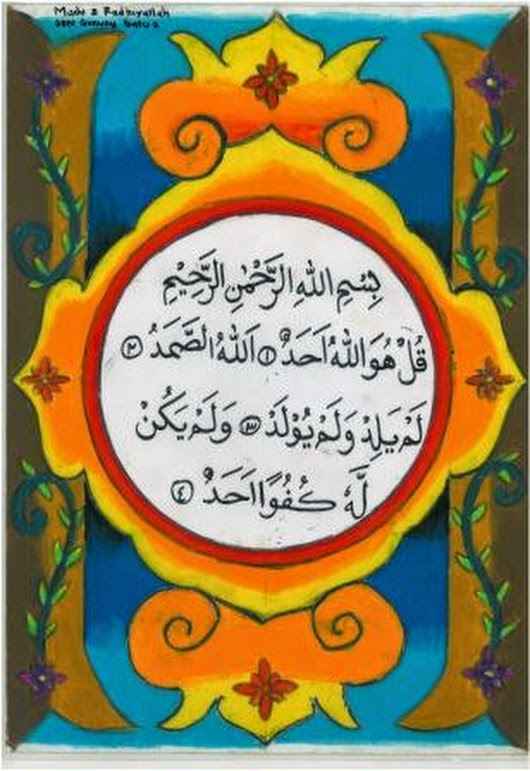 Radhiyallah
Gunung Batu 2
بِسْمِ اللهِ الرَّحْمٰنِ الرَّحِيْمِ
قُلْ هُوَ اللهُ اَحَدٌ ۚ ١ اَللهُ الصَّمَدُ ٢
لَمْ يَلِدْ وَلَمْ يُوْلَدْ ٣ وَلَمْ يَكُنْ
لَّهٗ كُفُوًا اَحَدٌ ٤